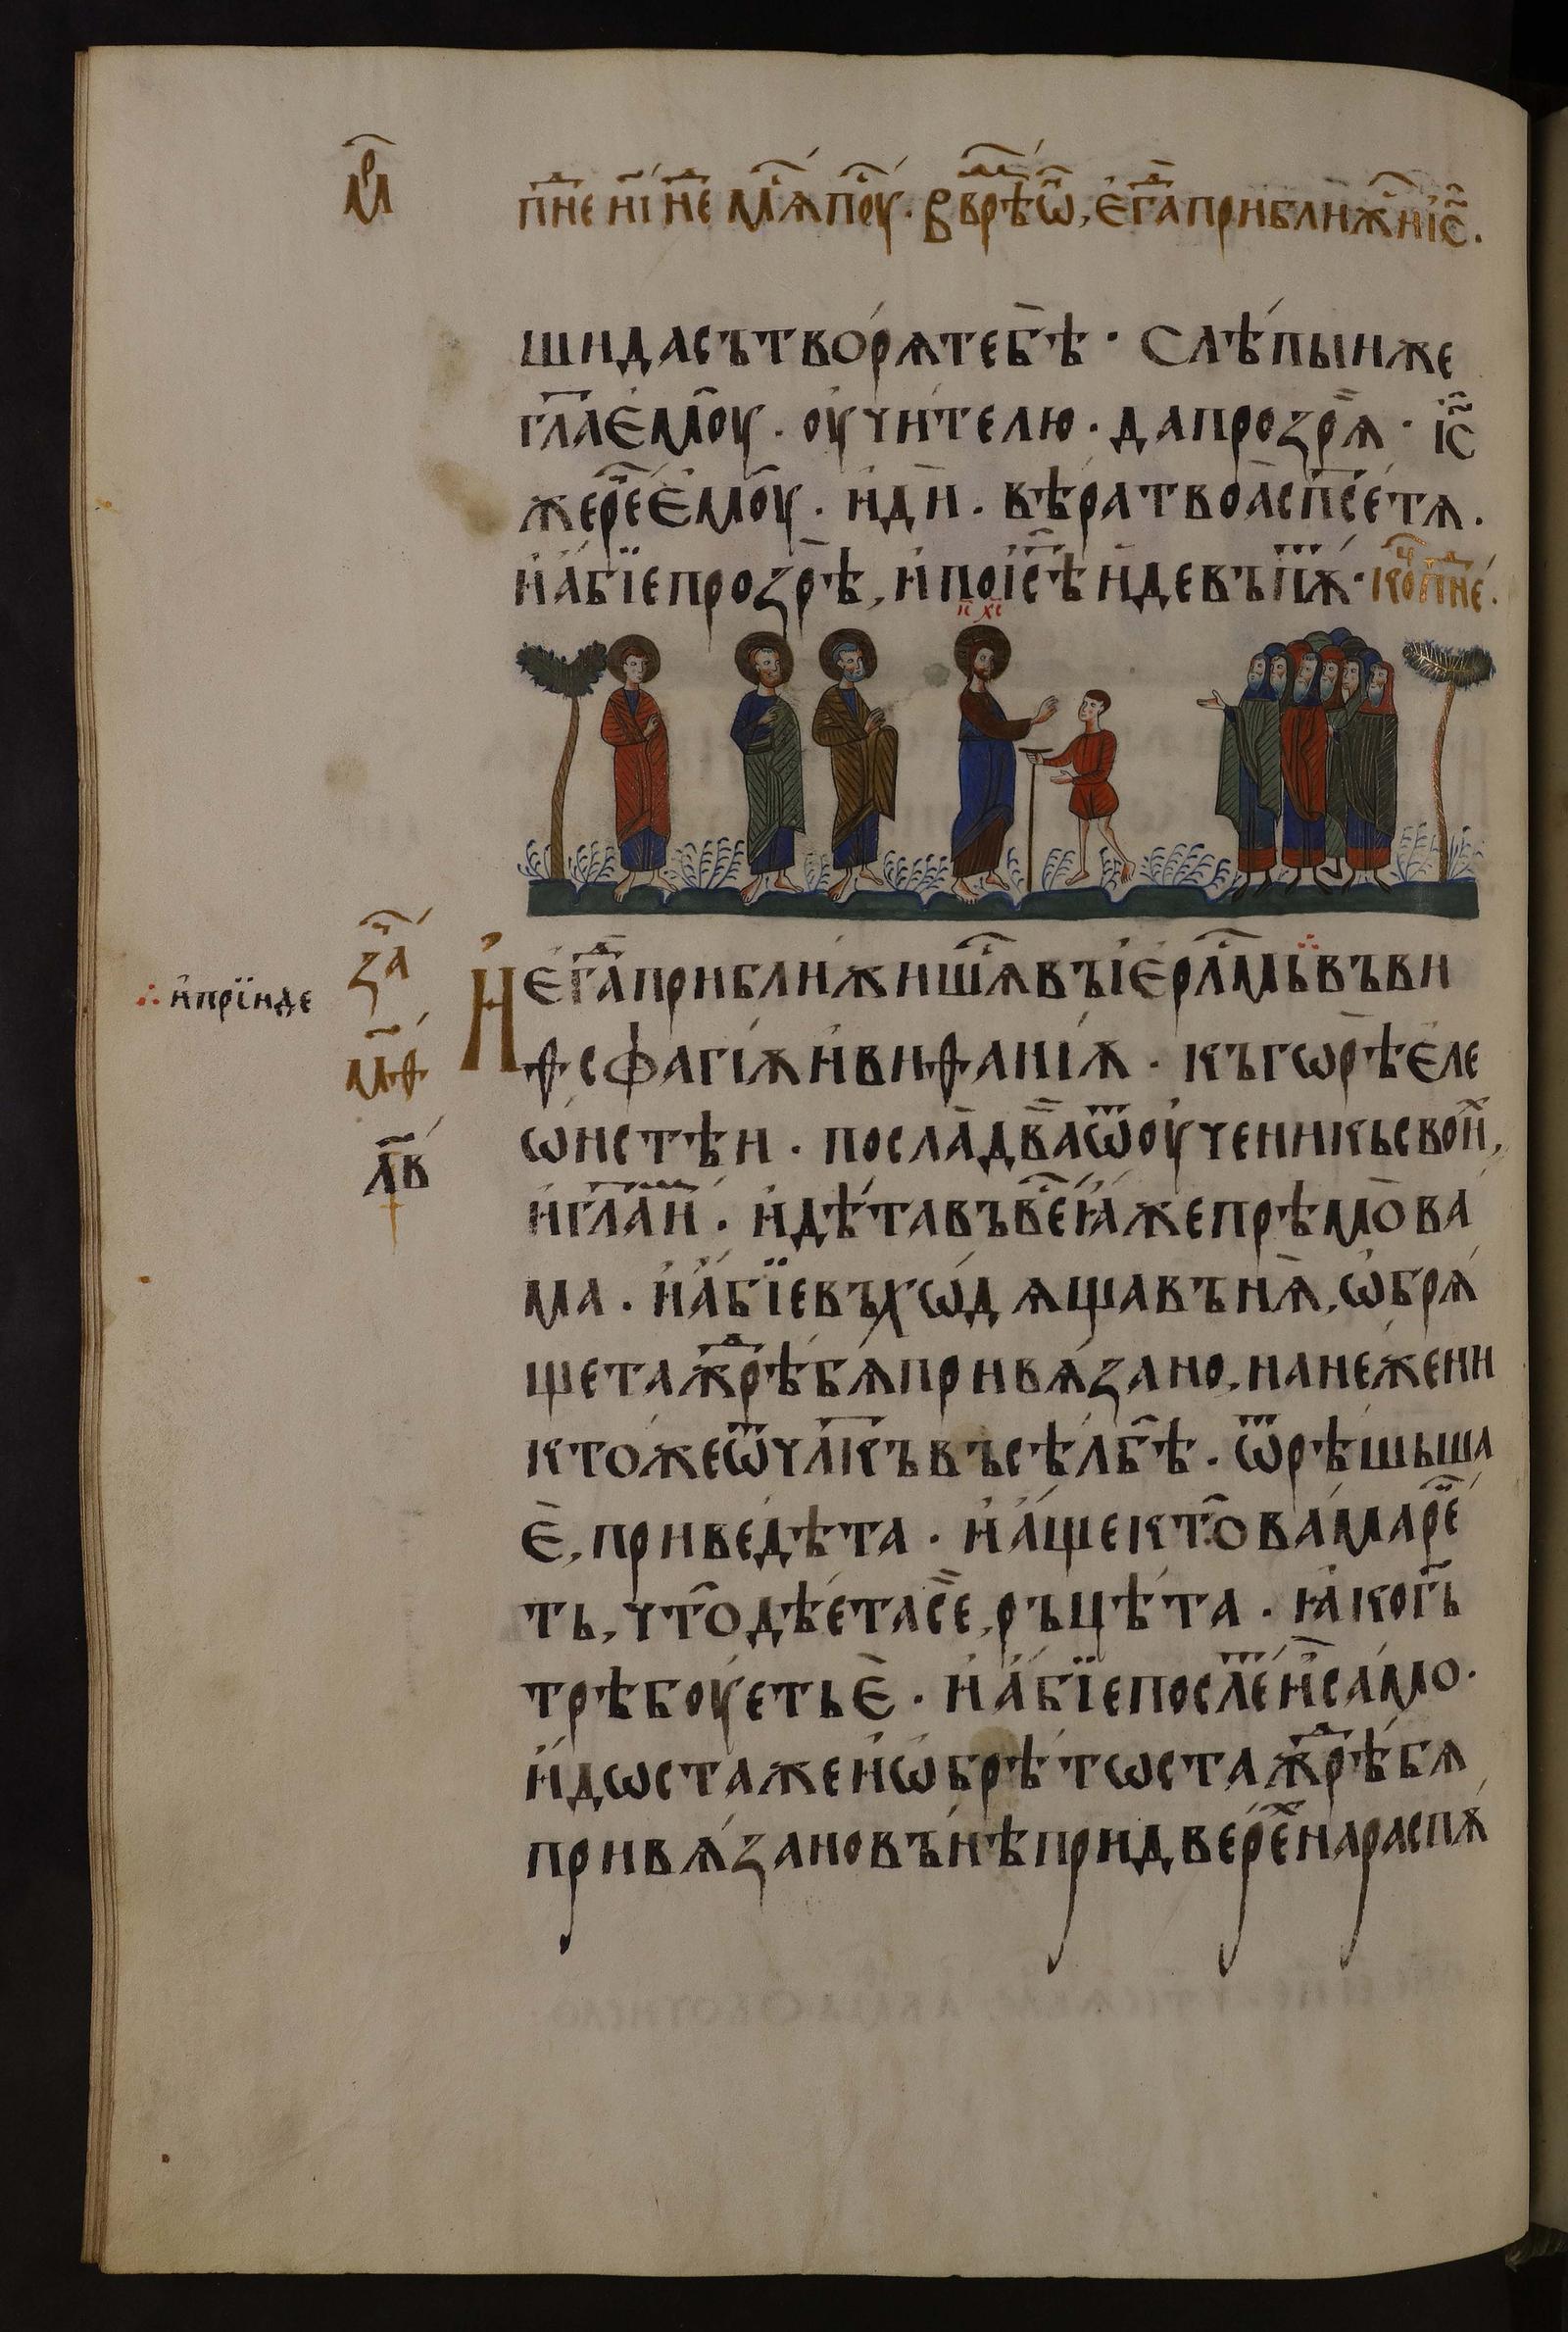 мр
пⷣне н҃і нⷣе мⷭ҇ѧ поⷭ҇у. въ врѣⷨ ѡ҆́н, є҆гⷣа приближиⷭ҇ і҆с҃.
ши да сътворѧ тебѣ · Слѣпыи же
гл҃а є҆моу̑ · оу҆чи́телю · да прозрѧ̀ · і҆с҃
же речⷭ҇е є҆моу̑ · и҆ди̑ · вѣ́ра твоа̀ сп҃се́ тѧ ·
и҆ а҆́бїе прозрѣ̀, и҆ по і҆с҃ѣ и҆́де въ пѫ́ⷮ · коⷰ҇ нⷣе́ ·
іс хс
заⷱ҇
∴ и҆ прїиде
И҆ є҆гⷣа прибли́жишѫⷭ҇ въ і҆ер҇лⷭ҇мь ∴ въ ви
мѳ҃
ѳсфагі́ѫ и҆ виѳані́ѫ · къ гѡрѣ̀ є҆ле
ѡ҆́нстѣи · посла̀ два̀ ѿ оу҆ченикь своиⷯ,
лв
и҆ гл҃а и҆́мⷨ · и҆дѣ́та въ веⷭ҇ ꙗ҆́же прѣмо̀ ва
ма · и҆ а҆́бїе въхѡ́дѧща въ нѧ̀, ѡ҆брѧ́
щета жⷣрѣ́бѧ привѧ́зано, на не́же ни
кто́же ѿ чл҃къ въсѣ́лⷭ҇ѣ · ѿрѣ́шьша
є҆̀, приведѣ́та · и҆ а҆́ще кто̑ ва́ма рече́
ть, что̑ дѣ́ета сѐ, ръцѣ́та · ꙗ҆́ко гⷭ҇ь
трѣбоу́еть є҆̀ · и҆ а҆́бїе послеⷮ́ и҆̀ сѣ́мо ·
и҆дѡста же и҆ ѡ҆брѣ́тѡста жⷣрѣ́бѧ
привѧ́зано въ́нѣ при две́реⷯ на распѫ́